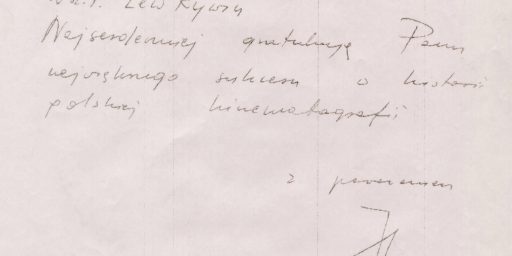 Lew Rywin
Najserdeczniej gratuluję Panu
największego sukcesu w historii
polskiej kinematografii
z poważaniem